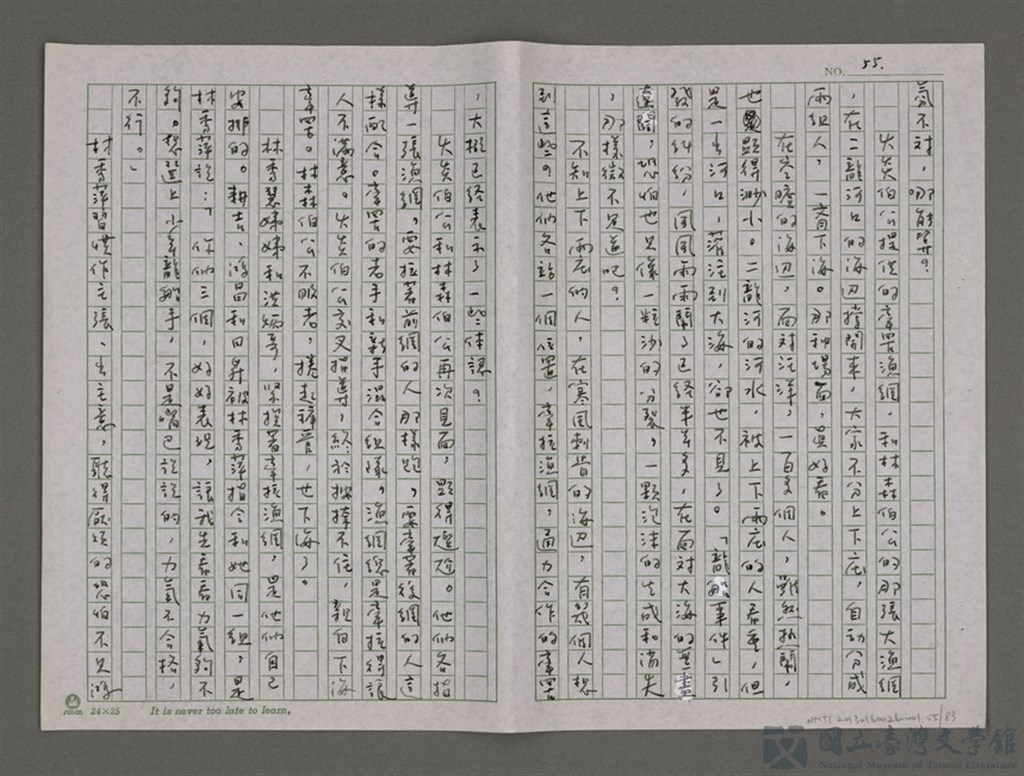 NO. 55.
氣不對，哪能算？
火炎伯公提供的牽罟漁網，和林森伯公的那張大漁網
，在二龍河口的海边撐開來，大家不分上下庄，自動分成
兩組人，一齊下海。那种場面，真好看。
在冬曈的海边，面対汪洋，一百多個人，雖然热鬧，
也顯得渺小。二龍河的河水，被上下兩庄的人看重，但
是一出河口，落注到大海，卻也不見了。「龍船事件」引
發的糾紛，風風雨雨鬧了已经半年多，在面対大海的無盡
遼闊，恐怕也只像一粒沙的分裂，一顆泡沫的生成和消失
，那樣微不足道吧？
不知上下兩庄的人，在寒風刺骨的海边，有幾個人想
到這些？他们各站一個位置，牽拉漁網，通力合作的牽罟
，大概已经表示了一些体認？
火炎伯公和林森伯公再次見面，顯得尷尬。他们各指
導一張漁網，要拉著前網的人那樣跑，要牽著後網的人這
樣配合。牽罟的老手和新手混合組隊，漁網總是牽拉得讓
人不滿意。火炎伯公交叉指導，終於按捺不住，親自下海
牽罟。林森伯公不服老，捲起褲管，也下海了。
林秀慧娣娣和洪炳哥，緊挨著牽拉漁網，是他们自己
安排的。耕吉、鴻昌和日昇被林秀萍指令和她同一組，是
林秀萍說：「你们三個，好好表現，讓我先看看力氣夠不
夠。想選上少年龍船手，不是嘴巴說說的，力氣不合格，
不行。」
林秀萍習慣作主張、出主意，聽得厭煩的恐怕不只鴻
24×25
It is never too late to learn,
NMTL20130180026-001 55/83
國立臺灣文學館
National Museum of Taiwan Literature